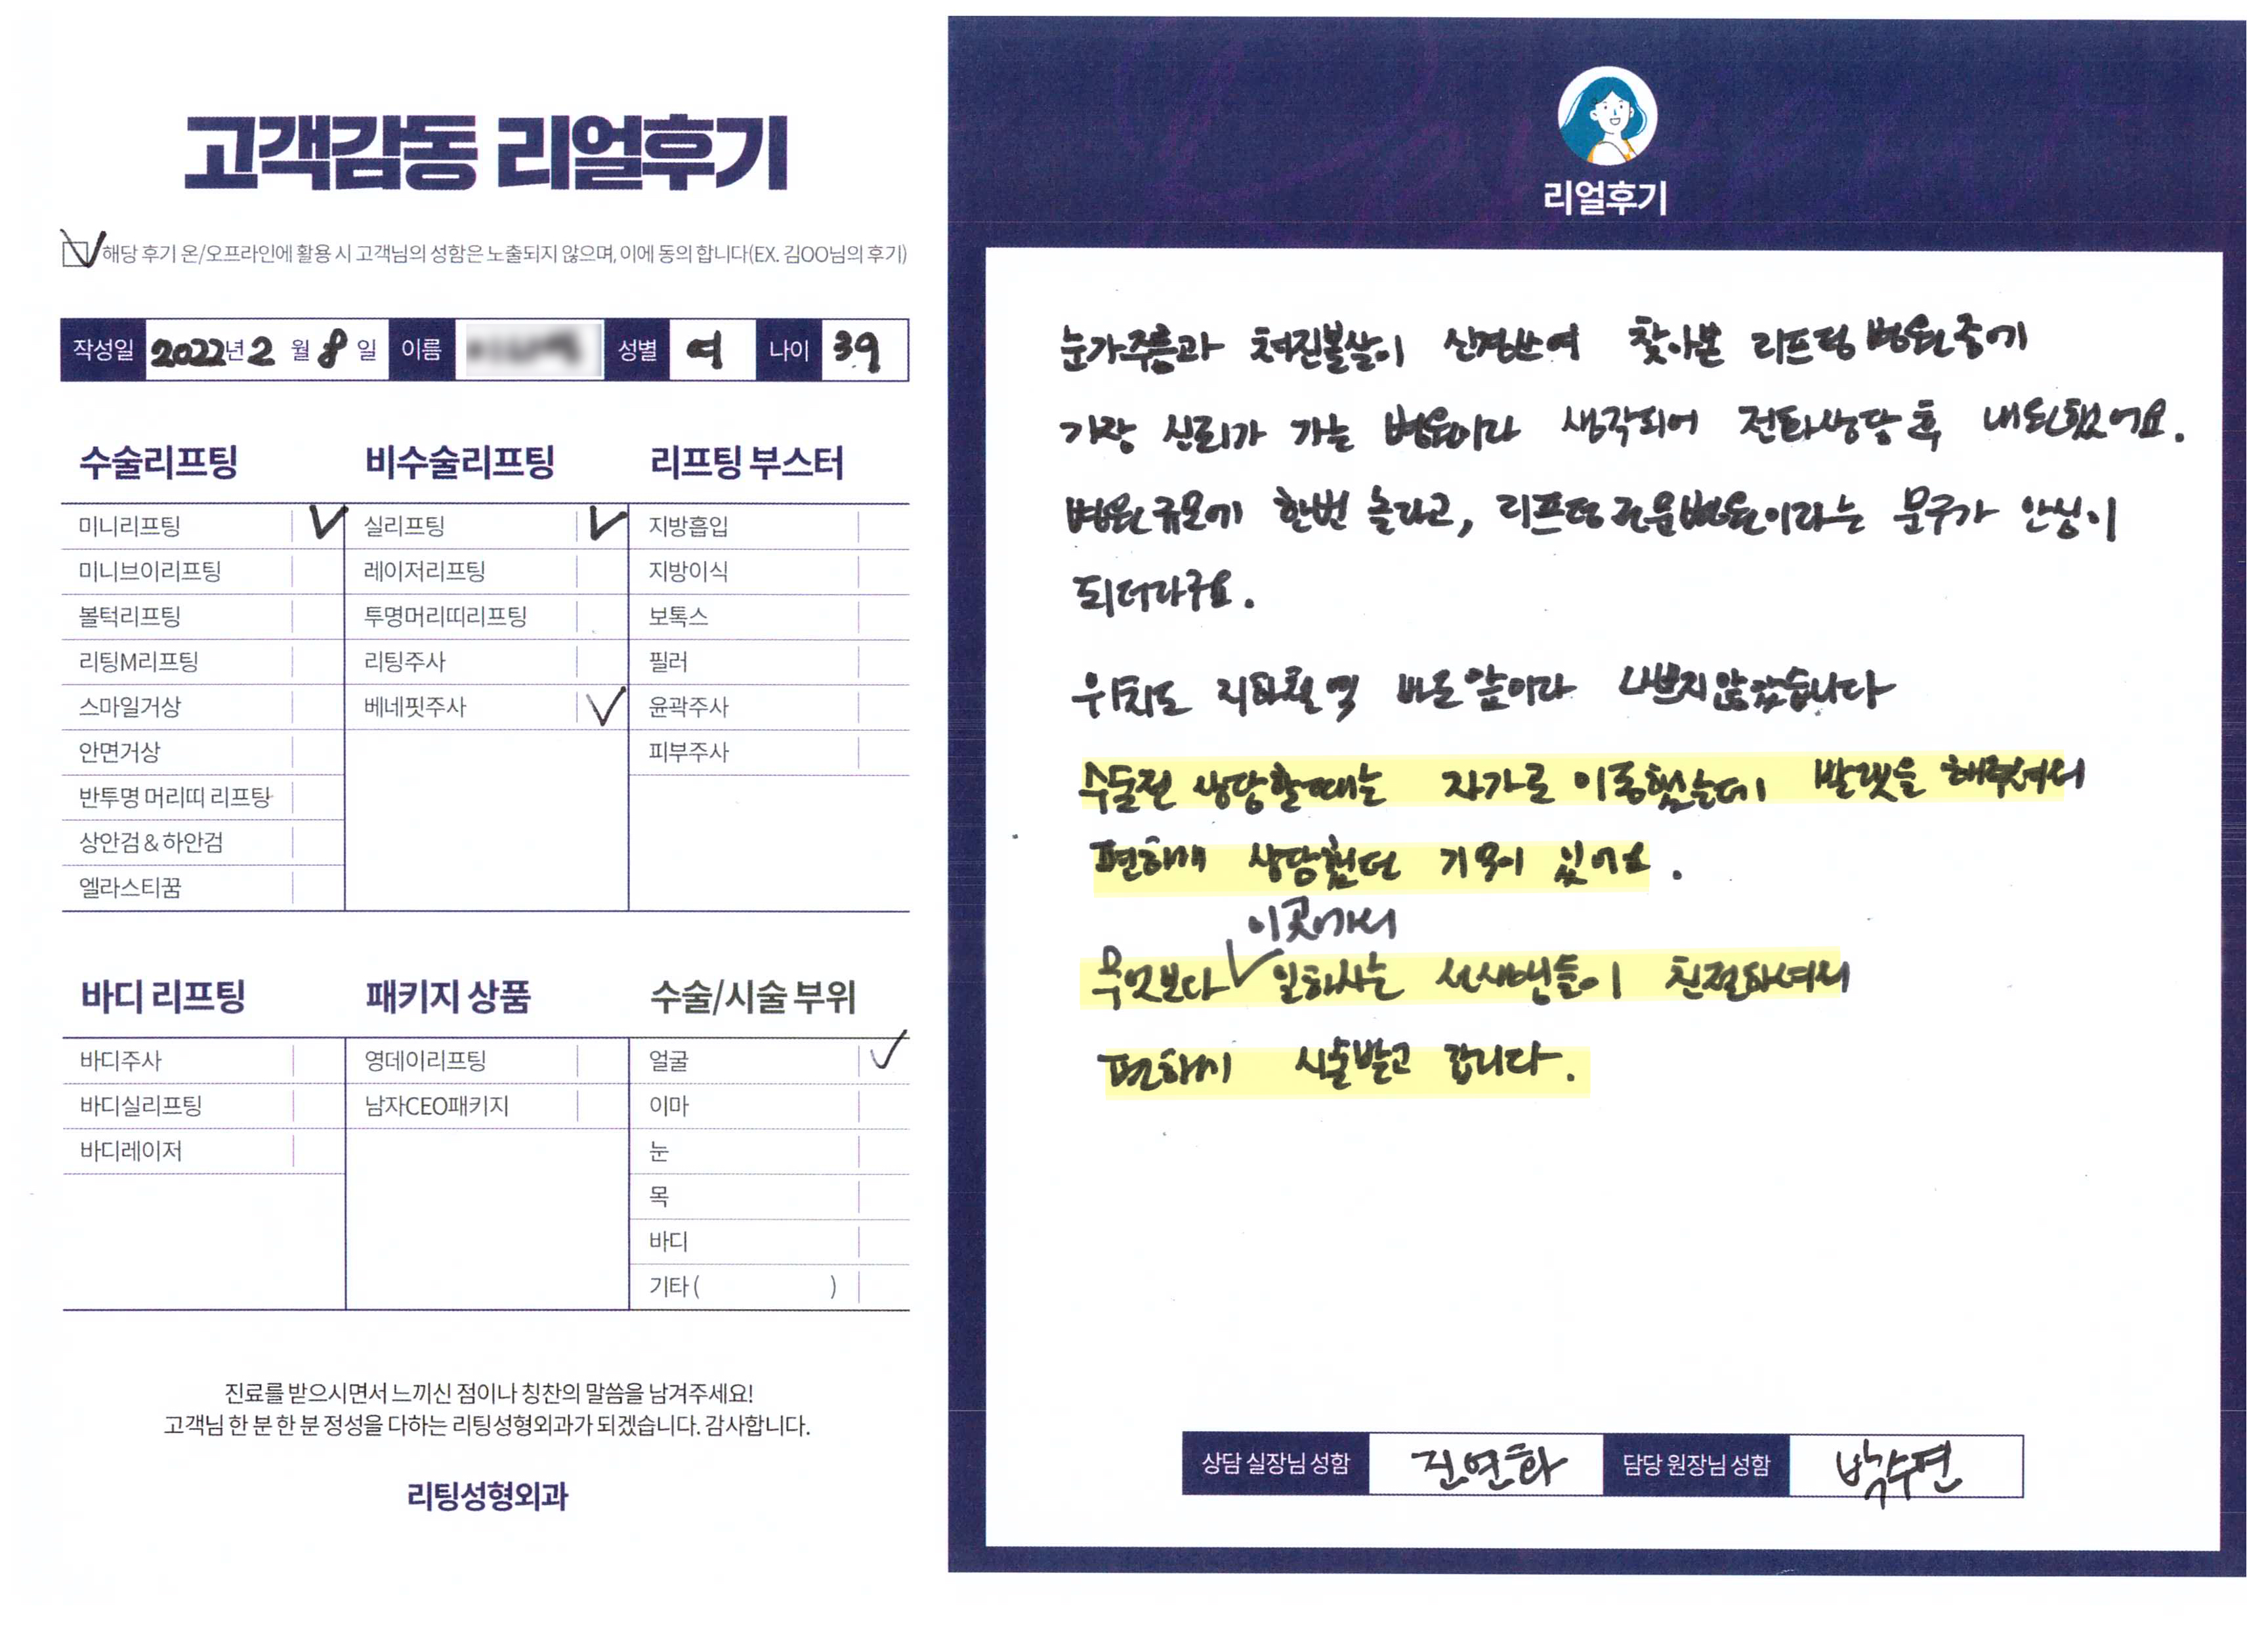 고객감동 리얼후기
해당 후기 온/오프라인에 활용 시 고객님의 성함은 노출되지 않으며, 이에 동의 합니다(EX. 김OO님의 후기)
작성일 2022년 2월 8일 이름 성별 여 나이 39
수술리프팅 비수술리프팅 리프팅 부스터
미니리프팅 실리프팅 지방흡입
미니브이리프팅 레이저리프팅 지방이식
볼턱리프팅 투명머리띠리프팅 보톡스
리팅M리프팅 리팅주사 필러
스마일거상 베네핏주사 윤곽주사
안면거상 피부주사
반투명 머리띠 리프팅
상안검 & 하안검
엘라스티꿈
바디 리프팅 패키지 상품 수술/시술 부위
바디주사 영데이리프팅 얼굴
바디실리프팅 남자CEO패키지 이마
바디레이저 눈
목
바디
기타 ( )
진료를 받으시면서 느끼신 점이나 칭찬의 말씀을 남겨주세요!
고객님 한 분 한 분 정성을 다하는 리팅성형외과가 되겠습니다. 감사합니다.
리팅성형외과
리얼후기
눈가주름과 처진볼살이 신경쓰여 찾아본 리프팅 병원중에
가장 신뢰가 가는 병원이라 생각되어 전화상담 후 내원했어요.
병원규모에 한번 놀라고, 리프팅 전문병원이라는 문구가 안심이
되더라구요.
위치도 지하철역 바로앞이라 나쁘지않았습니다
수술전 상담할때는 자가로 이동했는데 발렛을 해주셔서
편하게 상담했던 기억이 있어요.
무엇보다 이곳에서 일하시는 선생님들이 친절하셔서
편하게 시술받고 갑니다.
상담 실장님 성함 진연화 담당 원장님 성함 박수연